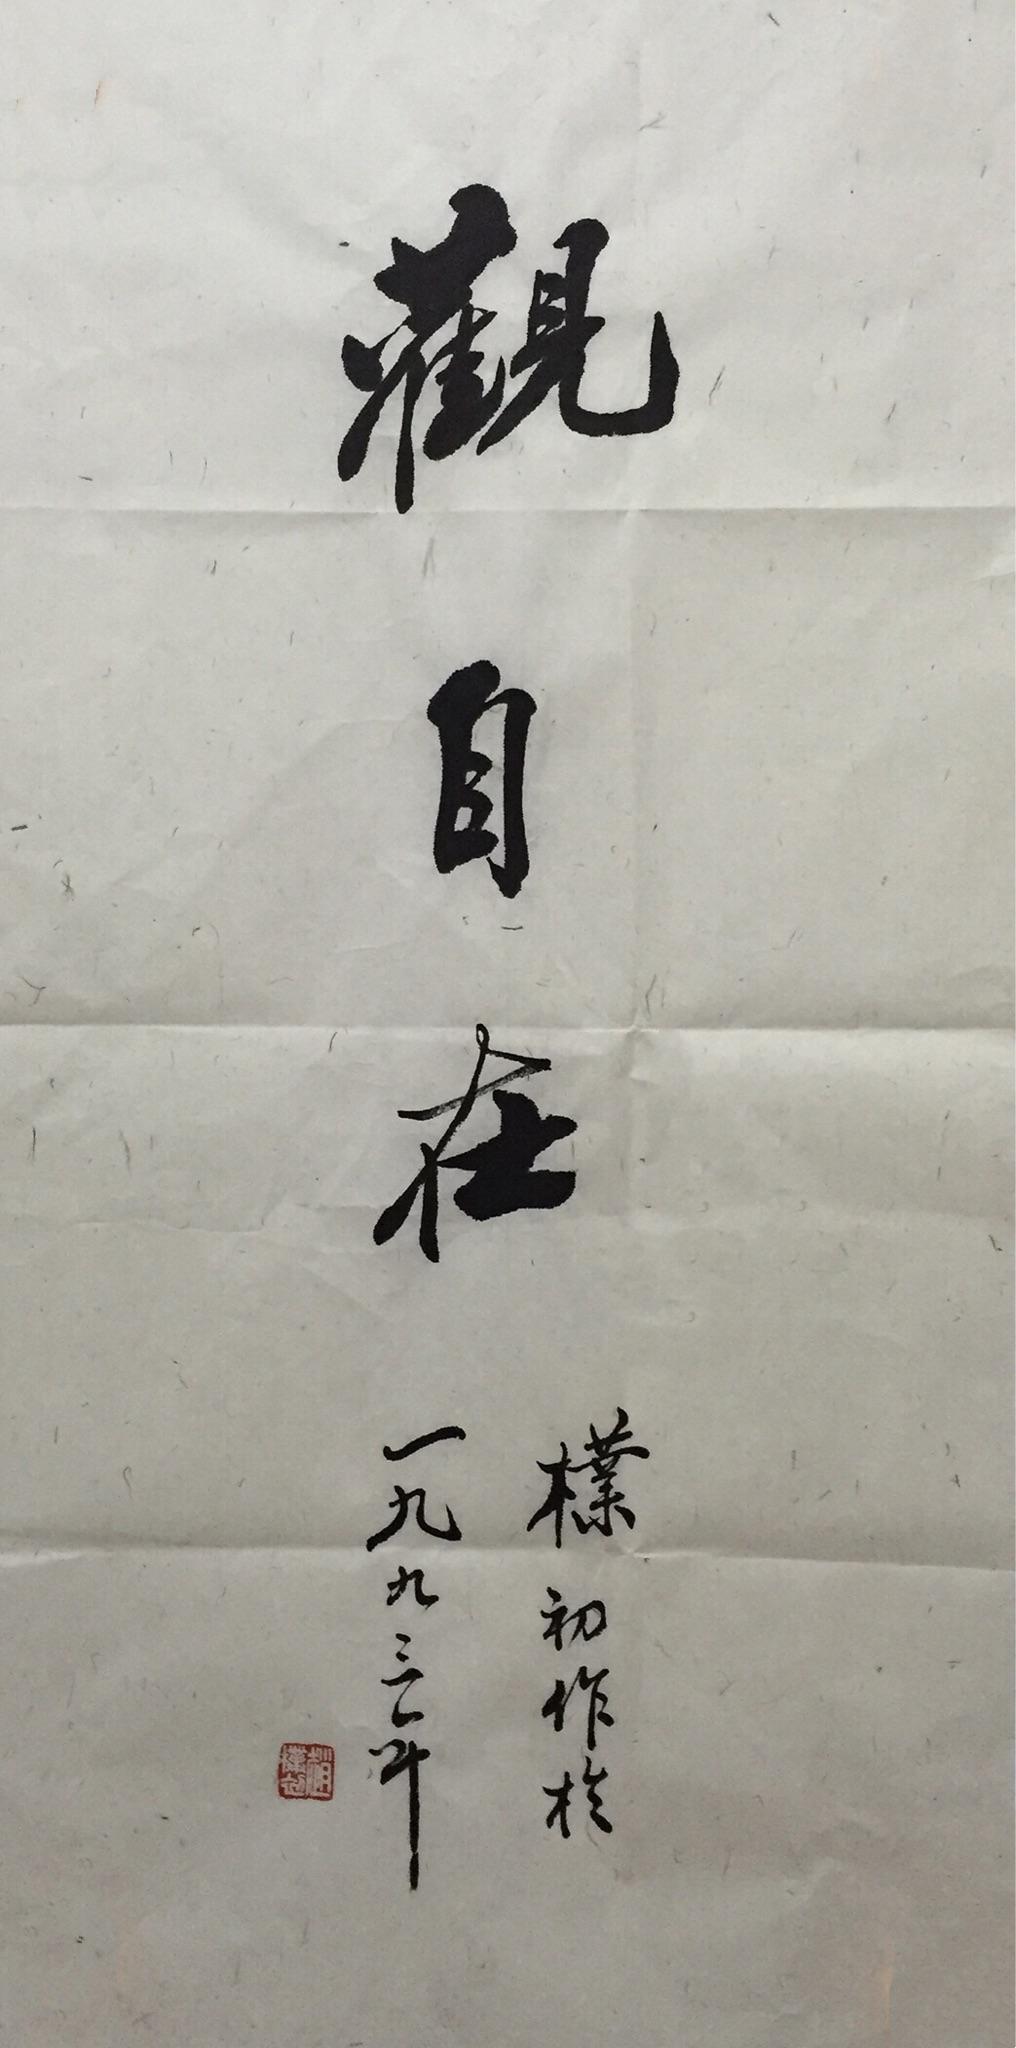 觀自在
樸初作於
一九九三年
趙樸初